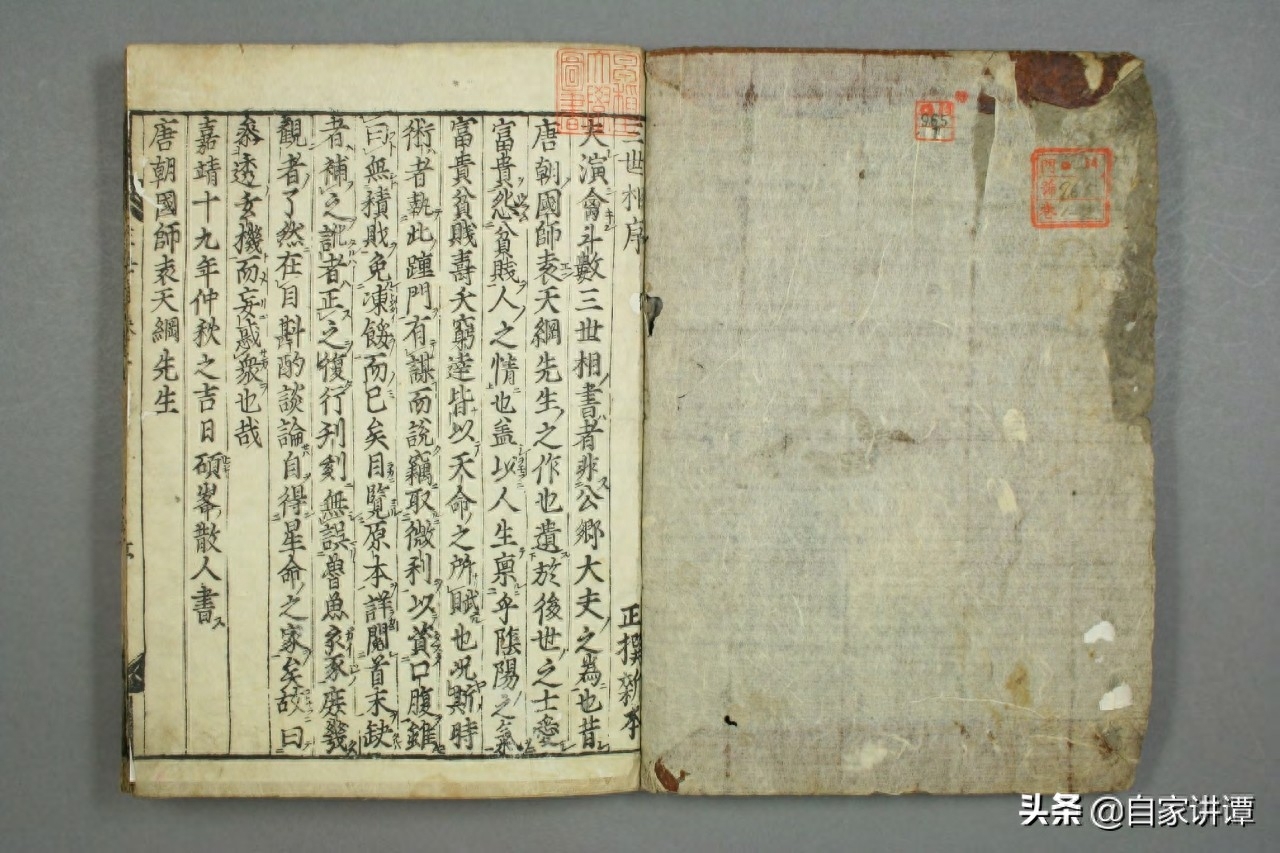 三世相序
正撰新本
夫演禽斗數三世相書者非公卿大夫之為也昔
唐朝國師袁天綱先生之作也遺於後世之士愛
富貴怨貧賤人之情也盖以人生稟乎陰陽之氣
富貴貧賤壽夭窮達皆以天命之所賦也況斯時
術者執此踵門有謀而說竊取微利以賞口腹雖
曰無積財免凍餒而已矣目覽原本詳閱首末缺
者補之訛者正之復行刋刻無誤魯魚家豕庶幾
觀者了然在目斟酌談論自得星命之家矣故曰
叅透玄機而妄惑衆也哉
嘉靖十九年仲秋之吉日碩峯散人書
唐朝國師袁天綱先生
965
1
965
头条 @自家讲谭